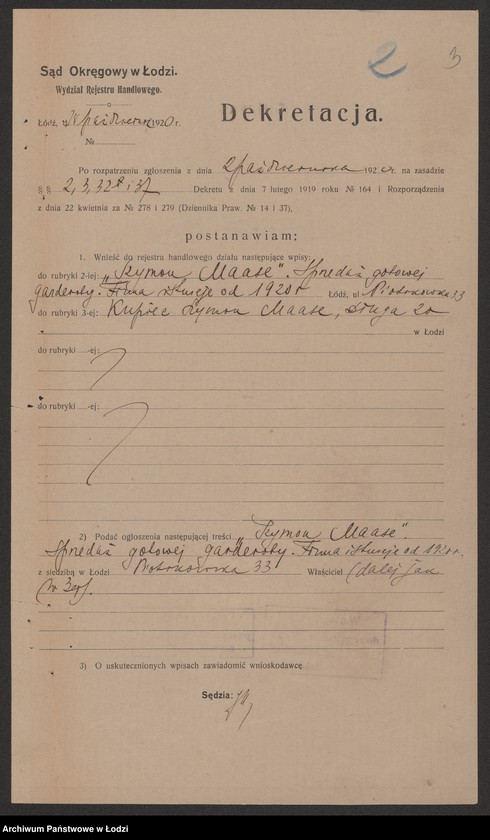 2
3
Sąd Okręgowy w Łodzi.
Wydział Rejestru Handlowego.
Łódź, d. października 1920 r.
№
Dekretacja.
Po rozpatrzeniu zgłoszenia z dnia 2 października 1920 r. na zasadzie
§ § 2, 3, 32 i 37 Dekretu z dnia 7 lutego 1919 roku № 164 i Rozporządzenia
z dnia 22 kwietnia za № 278 i 279 (Dziennika Praw. № 14 i 37),
postanawiam:
1. Wnieść do rejestru handlowego działu następujące wpisy:
do rubryki 2-ej: „Szymon Maase". Sprzedaż gotowej
garderoby. Firma istnieje od 1920 r Łódź, ul Piotrkowska 33
do rubryki 3-ej: Kupiec Szymon Maase, Długa 20
w Łodzi
do rubryki -ej:
do rubryki -ej:
2) Podać ogłoszenia następującej treści „Szymon Maase".
Sprzedaż gotowej garderoby. Firma istnieje od 1920 r.
z siedzibą w Łodzi Piotrkowska 33 Właściciel (dalej jak
w 3ej).
3) O uskutecznionych wpisach zawiadomić wnioskodawcę
Sędzia:
Archiwum Państwowe w Łodzi